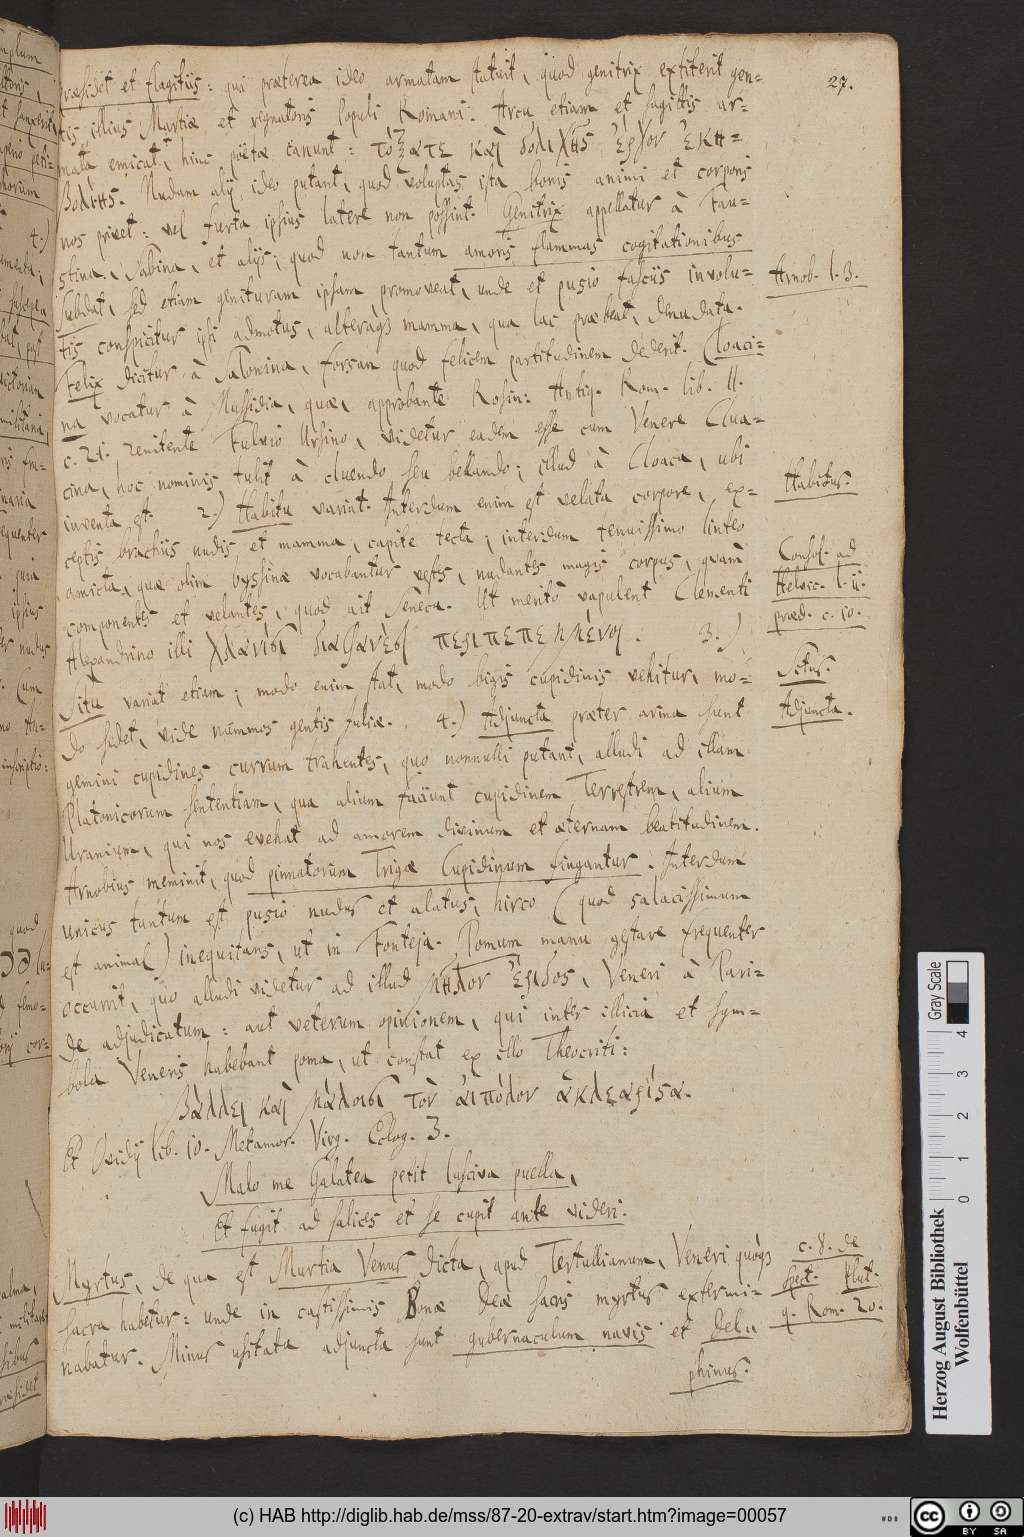 27.
præsidet et flagitiis: qui præterea ideo armatam statuit, quod genitrix extiterit gen-
tis illius Martiæ et regnatoris populi Romani. Arcu etiam et sagittis ar-
mata emicat, hinc poëtæ canunt: τόξατε καὶ δολιχῆς ἔργον ἑκη-
βολίης. Nudam alij ideo putant, quod voluptas ista bonis animi et corporis
nos privet: vel furta ipsius latere non possint. Genitrix appellatur à Fau-
stina, Sabina, et alijs; quod non tantum amoris flammas cogitationibus
subdat, sed etiam genituram ipsam promoveat, unde et pusio fasciis involu-
Arnob. l. 3.
tis conspicitur ipsi admotus, alteraq3 mamma, qua lac præbeat, denudata.
Felix dicitur à Salonina, forsan quod felicem partitudinem dederit. Cloaci-
na vocatur à Mussidia, quæ, approbante Rosin: Antiq. Rom. lib. II.
c. 21. renitente Fulvio Ursino, videtur eadem esse cum Venere Clua-
cina, hoc nominis tulit à cluendo seu bellando; illud à Cloaca, ubi
inventa est. 2.) Habitu variat. Interdum enim est velata corpore, ex-
Habitus.
ceptis brachiis nudis et mamma, capite tecta; interdum tenuissimo linteo
amicta, quæ olim byssinæ vocabantur vestes, nudantes magis corpus, quam
componentes et velantes, quod ait Seneca. Ut meritò vapulent Clementi
Consol. ad
Helvic. l. ii.
præd. c. 10.
Alexandrino illi χλανίδι διαφανέϊ περιπεπεμμέναι. 3.)
Situ variat etiam; modo enim stat, modo bigis cupidinis vehitur, mo-
Situs.
do sedet, vide nummos gentis Juliæ. 4.) Adjuncta præter arma sunt
Adjuncta.
gemini cupidines currum trahentes, quo nonnulli putant, alludi ad illam
Platonicorum sententiam, qua alium faciunt cupidinem Terrestrem, alium
Uranium, qui nos evehat ad amorem divinum et æternam beatitudinem.
Arnobius meminit, quod pinnatorum Trigæ Cupidinum fingantur. Interdum
unicus tantum est pusio nudus et alatus, hirco (quod salacissimum
est animal) inequitans, ut in Fonteja. Pomum manu gestare frequenter
occurrit, quo alludi videtur ad illud μῆλον ἔριδος, Veneri à Pari-
de adjudicatum: aut veterum opinionem, qui inter illicia et sym-
bola Veneris habebant poma, ut constat ex illo Theocriti:
Βάλλει καὶ μάλοισι τὸν αἰπόλον ἁ κλεαρίστα.
Et Ovidij lib. 10. Metamor. Virg. Eclog. 3.
Malo me Galatea petit lasciva puella,
Et fugit ad salices et se cupit ante videri.
Myrtus, de qua est Murtia Venus dicta, apud Tertullianum, Veneri quoq3
c. 8. de
spect. Plut.
q. Rom. 20.
sacra habetur: unde in castissimis Bonæ Deæ sacris myrtus extermi-
nabatur. Minus usitata adjuncta sunt gubernaculum navis et Del-
phinus.
Gray Scale
0 1 2 3 4
Herzog August Bibliothek
Wolfenbüttel
(c) HAB http://diglib.hab.de/mss/87-20-extrav/start.htm?image=00057
cc BY SA